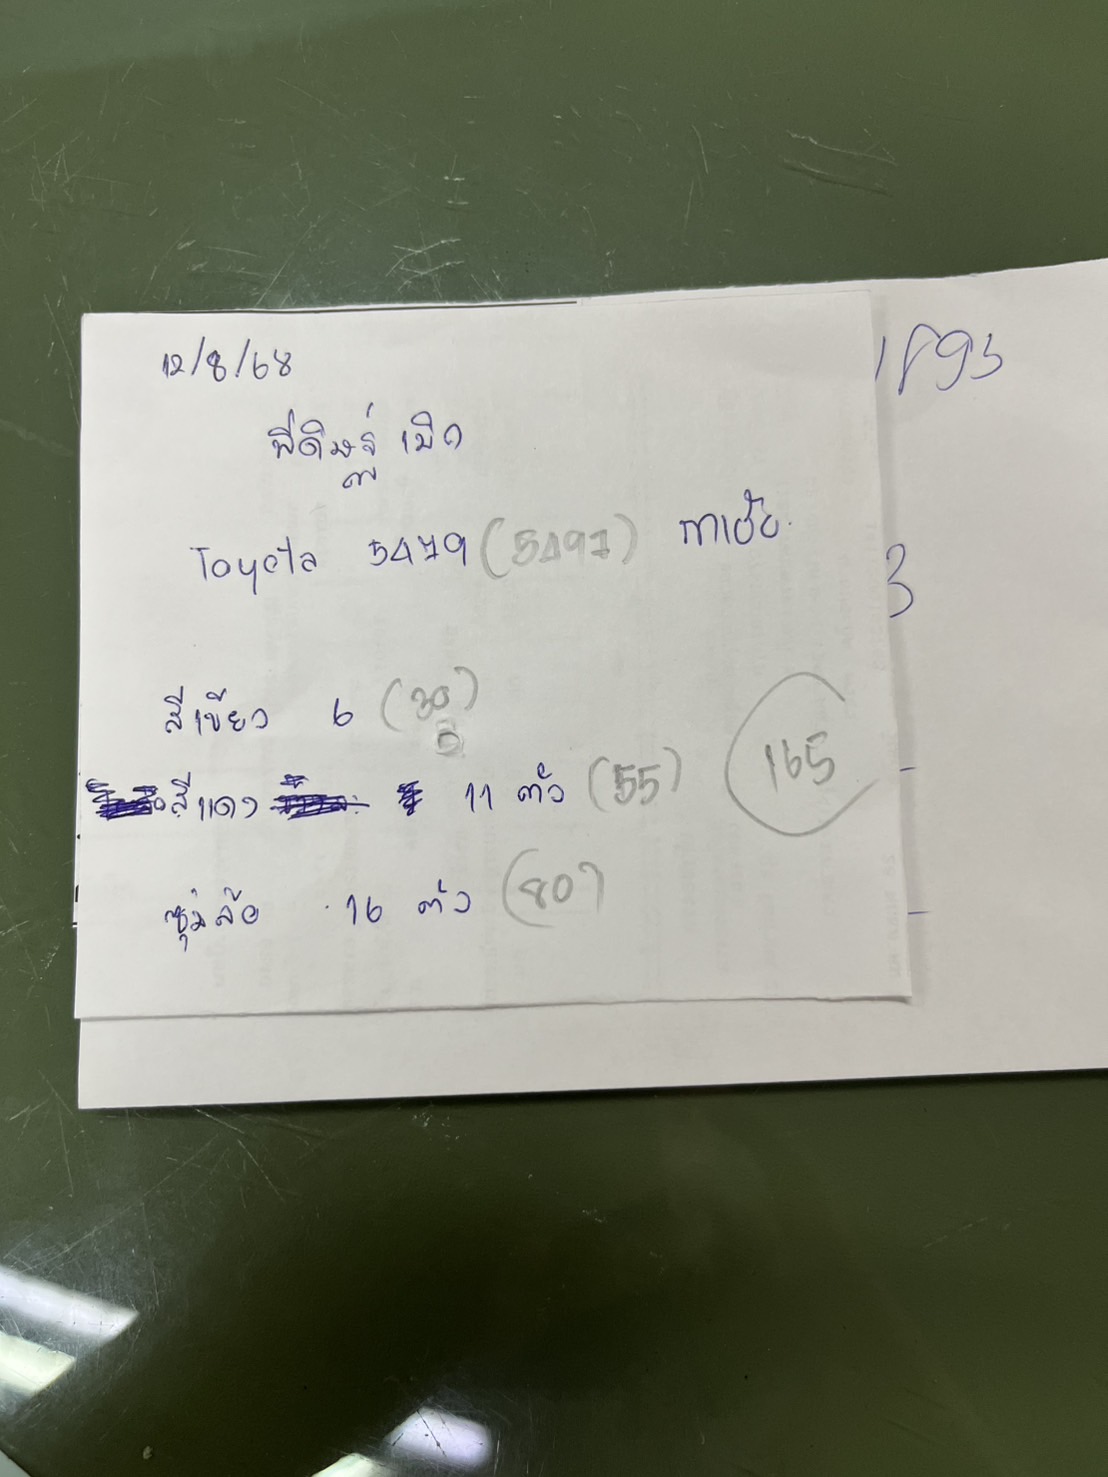 12/8/68
พี่ดิษฐ์ เบิก
Toyota 5479 (5497)
สีเขียว 6 (30)
5
สีแดง 11 ตัว (55) 165
ซุ้มล้อ 16 ตัว (80)
3